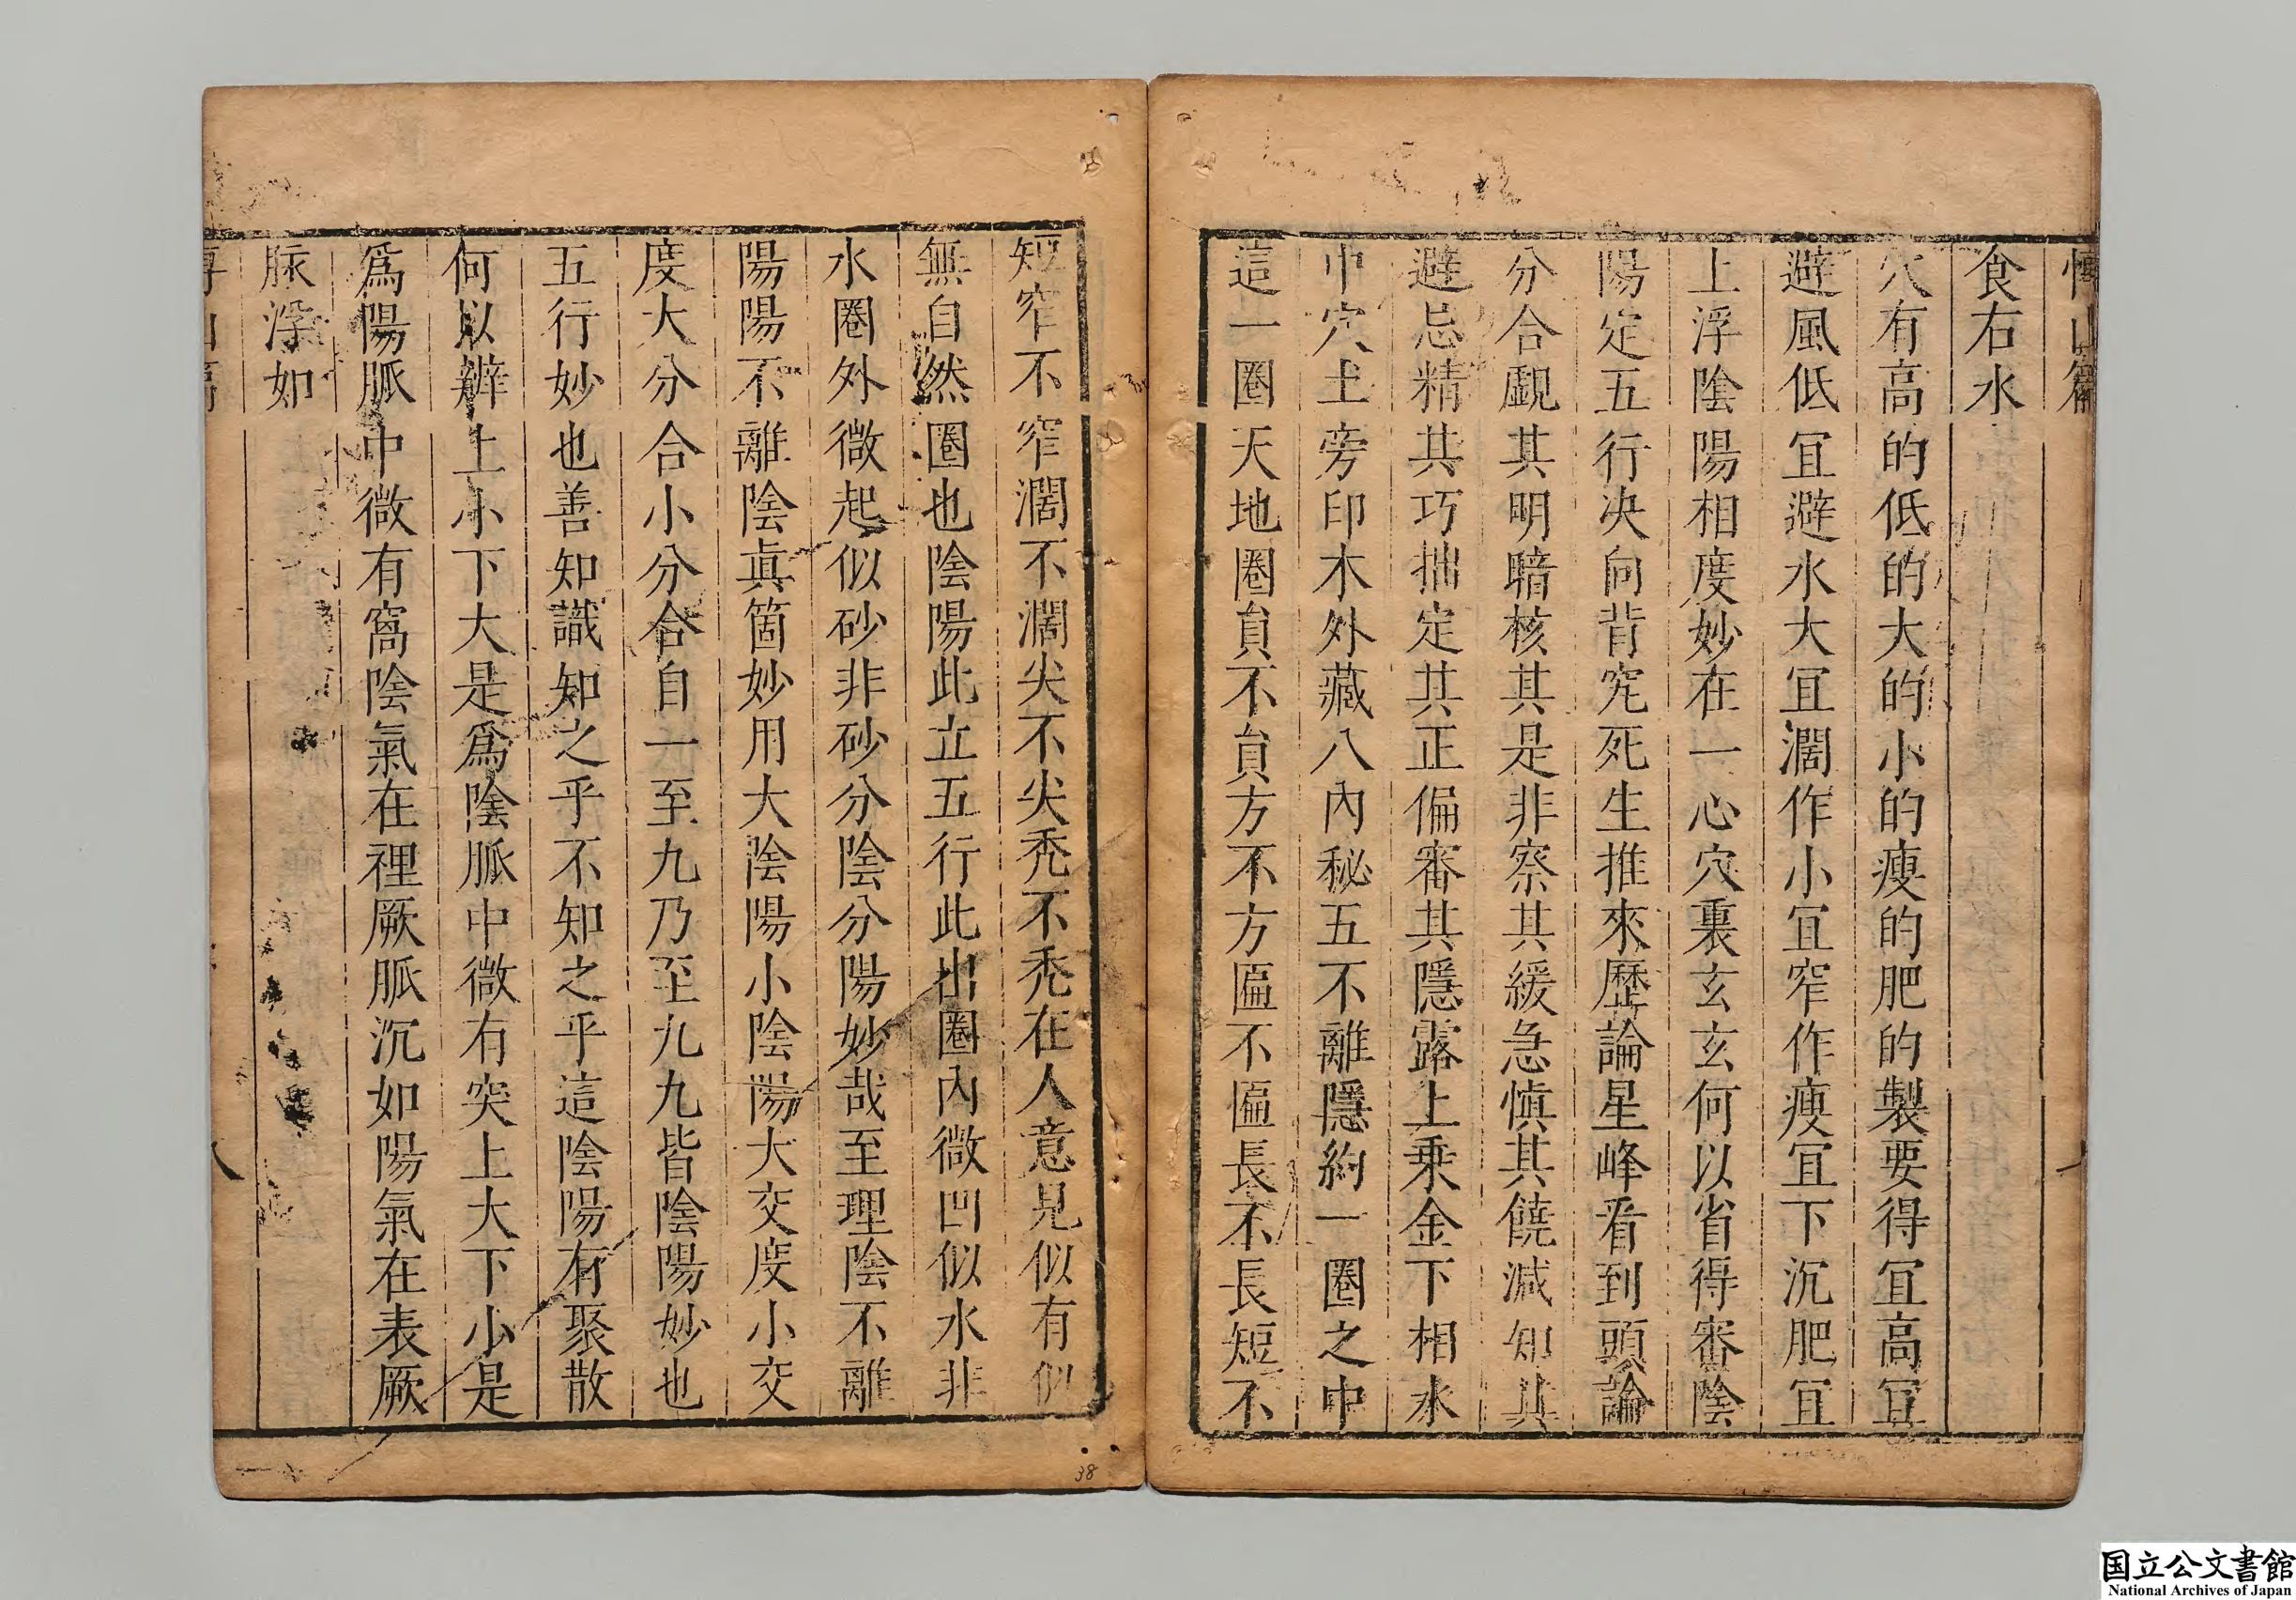 博山篇
食右水
穴有高的低的大的小的瘦的肥的製要得冝高冝
避風低冝避水大冝濶作小冝窄作瘦冝下沉肥冝
上浮陰陽相度妙在一心穴裏玄玄何以省得審陰
陽定五行決向背究死生推來歷論星峰看到頭論
分合覷其明暗核其是非察其緩急慎其饒減知其
避忌精其巧拙定其正偏審其隱露上乗金下相水
中穴土旁印木外藏八內秘五不離隱約一圈之中
這一圈天地圈負不負方不方匾不匾長不長短不
短窄不窄濶不濶尖不尖禿不禿在人意見似有似
無自然圈也陰陽此立五行此出圈內微凹似水非
水圈外微起似砂非砂分陰分陽妙哉至理陰不離
陽陽不離陰眞箇妙用大陰陽小陰陽大交度小交
度大分合小分合自一至九乃至九九皆陰陽妙也
五行妙也善知識知之乎不知之乎這陰陽有聚散
何以辨上小下大是爲陰脈中微有突上大下小是
爲陽脈中微有窩陰氣在裡厥脈沉如陽氣在表厥
脉浮如
博山篇
八
38
国立公文書館
National Archives of Japan